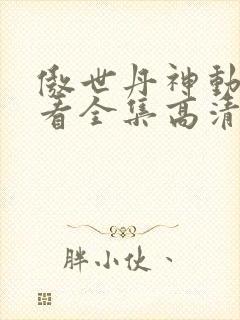 傲世丹神動
看全集高清
胖小伙、